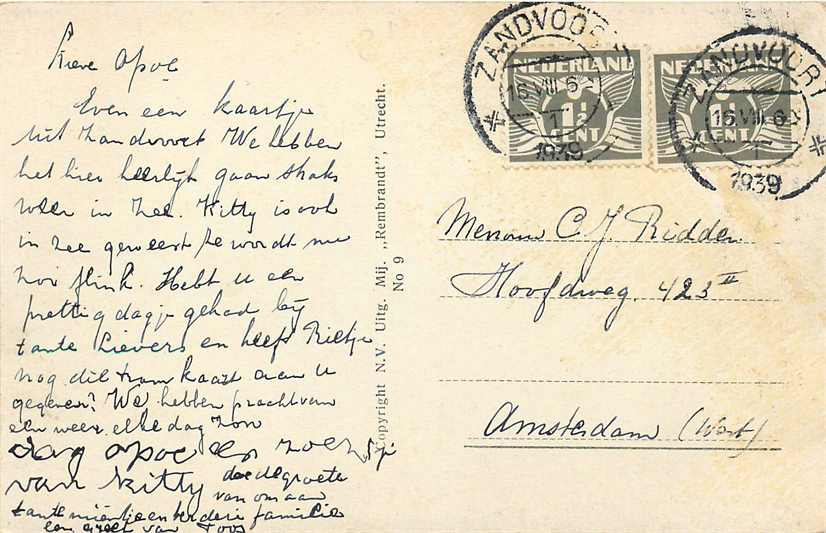 Lieve Opoe
Even een kaartje
uit Zandvoort We hebben
het hier heerlijk gaan straks
weer in zee. Kitty is ook
in zee geweest ze wordt nu
hoor flink. Hebt u een
prettig dagje gehad bij
tante Lievers en heeft Rietje
nog die tramkaart aan u
gegeven? We hebben pracht van
een weer elke dag zon
dag opoe en zoen
van Kitty doe de groete
van om aan
tante mientje en verdere familie
een groet van Toos
Copyright N.V. Uitg. Mij. „Rembrandt", Utrecht.
No 9
ZANDVOORT
16.VIII.6
1
1939
NEDERLAND
1½
CENT
NEDERLAND
1½
CENT
ZANDVOORT
16.VIII.6
1
1939
Mevrouw C. J. Ridder
Hoofdweg. 423 II
Amsterdam (West)